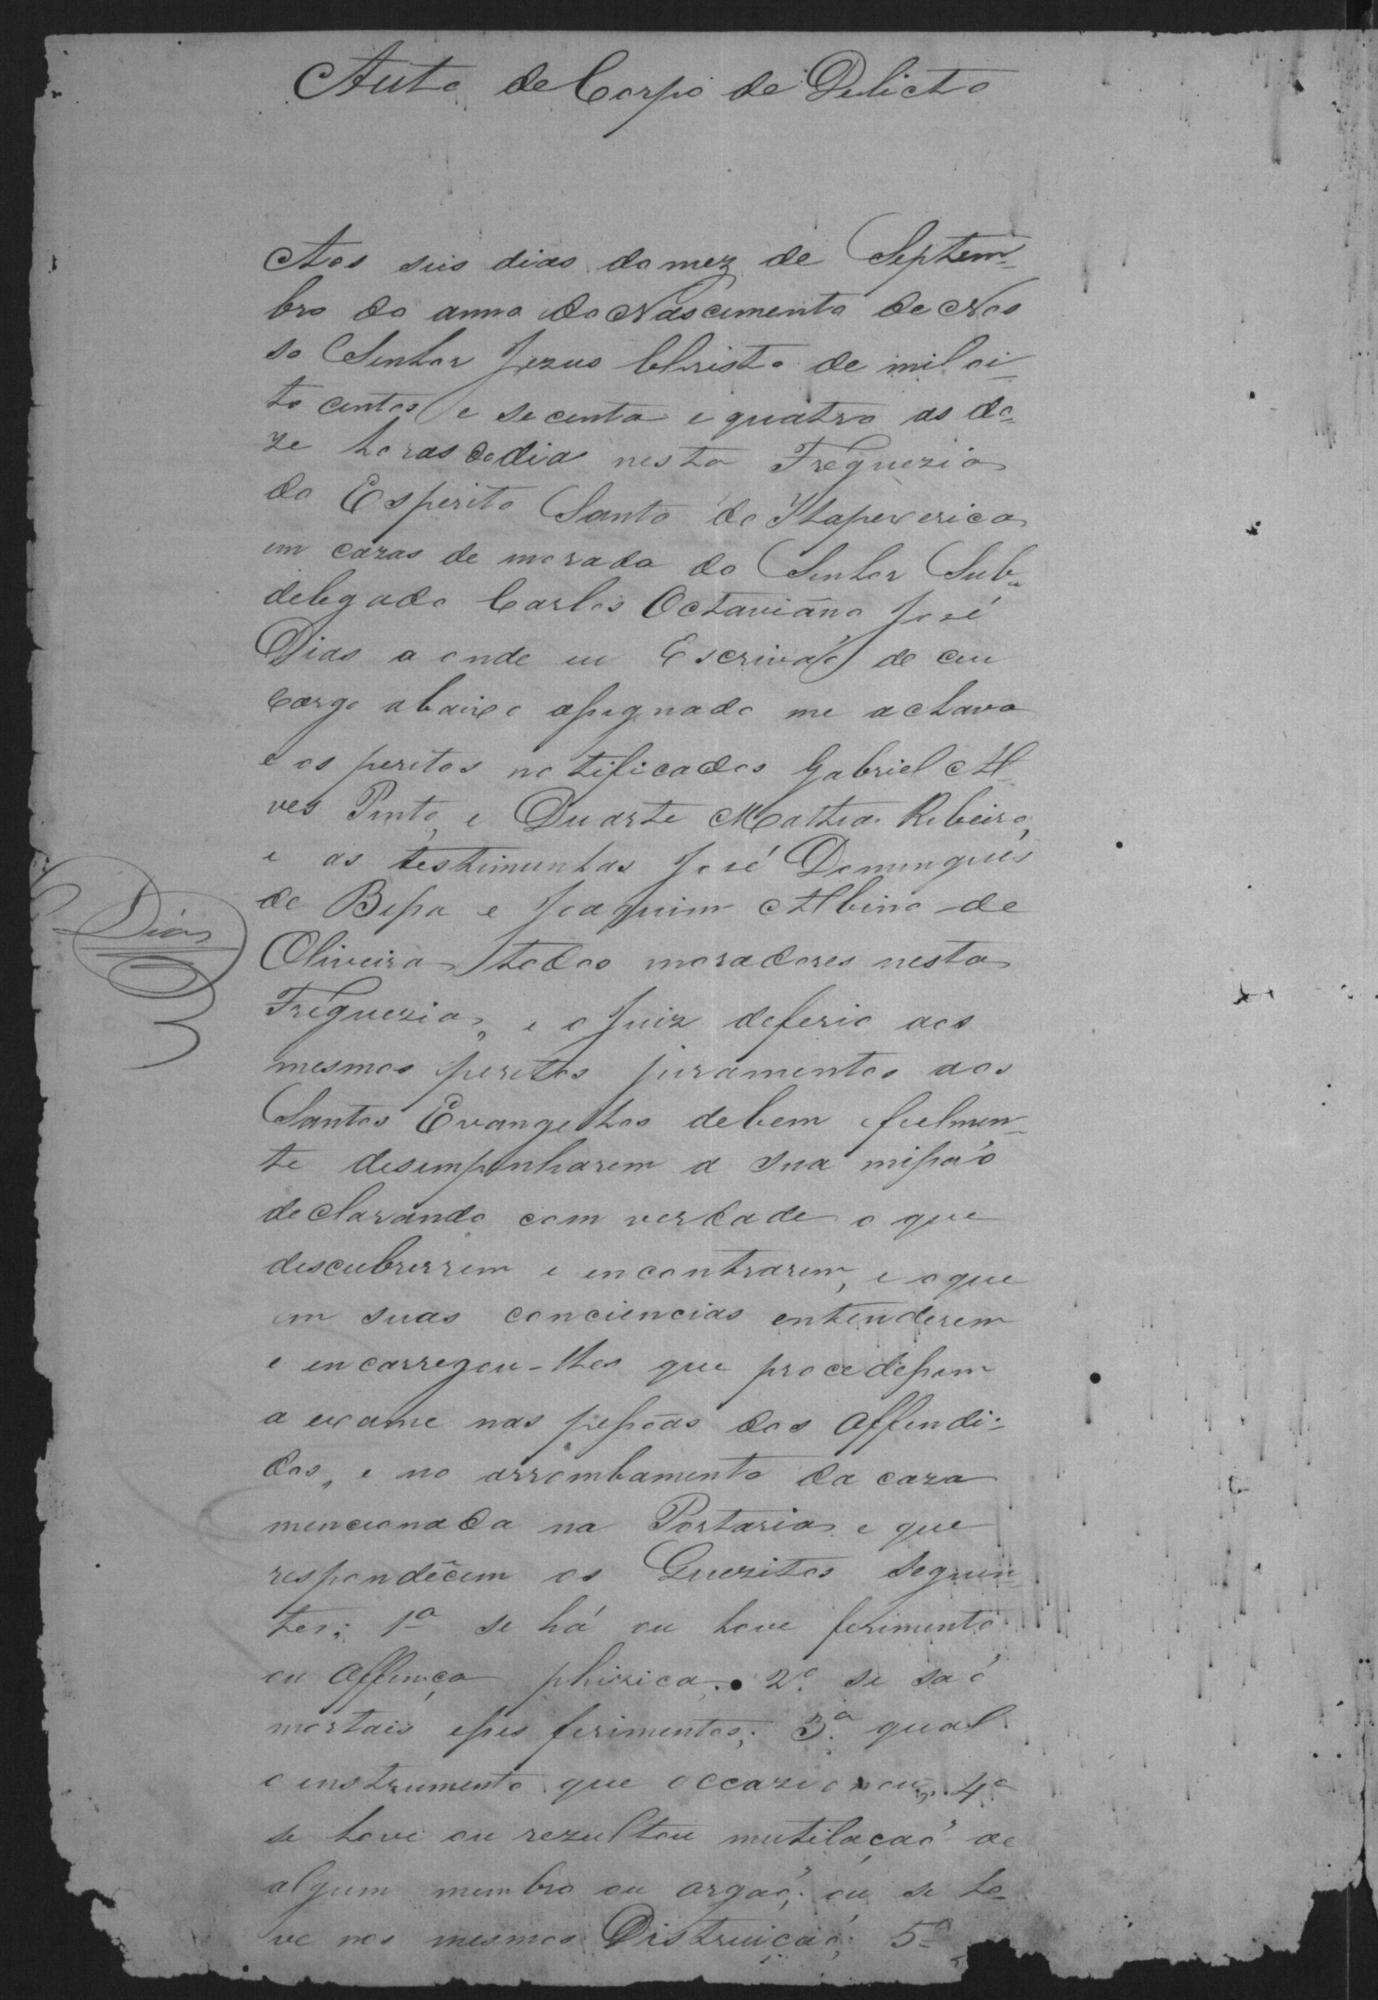 Auto de Corpo de Delicto
Aos seis dias do mez de Septem-
bro do anno do Nascimento de Nos
so Senhor Jezus Christo de mil oi-
to centos e secenta e quatro as do-
ze horas do dia nesta Freguezia
do Espirito Santo do Itapeverica
em cazas de morada do Senhor Sub-
delegado Carlos Octaviano José
Dias a onde eu Escrivaõ de ceu
cargo abaixo assignado me achava
e os peritos notificados Gabriel Al-
ves Pinto, e Duarte Mathias Ribeiro,
e as testimunhas José Domingues
de Bessa e Joaquim Albino de
Dias
Oliveira todos moradores nesta
Freguezia, e o Juiz deferio aos
mesmos peritos juramentos aos
Santos Evangelhos de bem fielmen-
te desempenharem a sua missaõ
declarando com verdade o que
descubrirem e encontrarem, e o que
em suas conciencias entenderem
e encarregou-lhes que procedessem
a exame nas pessoas dos Affendi-
dos, e no arrombamento da caza
mencionada na Portaria e que
respondêcem os Quezitos seguin-
tes; 1º se há ou hove ferimento
ou Offenca phizica; 2º se saõ
mortais esses ferimentos; 3º qual
o instrumento que occazionou; 4º
se hove ou rezultou mutilaçaõ de
algum membro ou orgaõ; ou se ho-
ve nos mesmos Distruiçaõ; 5º